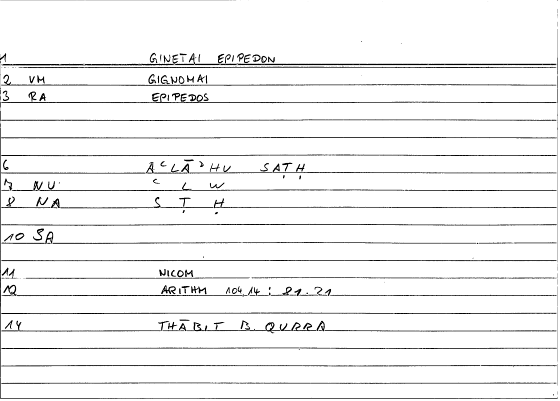 1 GINETAI EPIPEDON
2 VM GIGNOMAI
3 RA EPIPEDOS
6 AʿLĀʾHU SAṬḤ
7 NU ʿ L W
8 NA S Ṭ Ḥ
10 3A
11 NICOM
12 ARITHM 104.14 : 81.21
14 THĀBIT B. QURRA